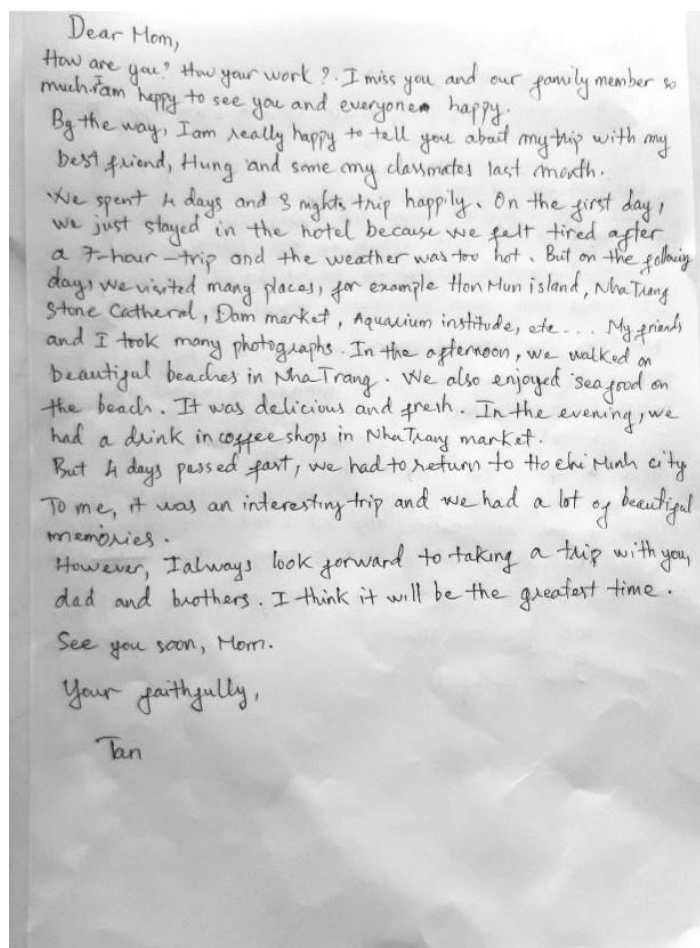 Dear Mom,
How are you? How your work?. I miss you and our family member so
much. I am happy to see you and everyone happy.
By the way, I am really happy to tell you about my trip with my
best friend, Hung and some my classmates last month.
We spent 4 days and 3 nights trip happily. On the first day,
we just stayed in the hotel because we felt tired after
a 7-hour-trip and the weather was too hot. But on the following
days, we visited many places, for example Hon Mun island, Nha Trang
Stone Catheral, Dam market, Aquarium institude, etc... My friends
and I took many photographs. In the afternoon, we walked on
beautiful beaches in Nha Trang. We also enjoyed seafood on
the beach. It was delicious and fresh. In the evening, we
had a drink in coffee shops in Nha Trang market.
But 4 days passed fast, we had to return to Ho Chi Minh city
To me, it was an interesting trip and we had a lot of beautiful
memories.
However, I always look forward to taking a trip with you,
dad and brothers. I think it will be the greatest time.
See you soon, Mom.
Your faithfully,
Tan